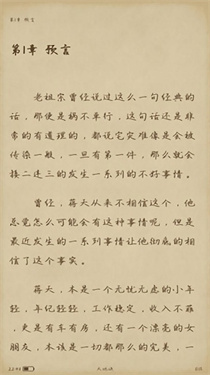 第1章 预言
第1章 预言
老祖宗曾经说过这么一句经典的
话，那便是祸不单行，这句话还是非
常的有道理的，都说灾灾难像是会被
传染一般，一旦有第一件，那么就会
接二连三的发生一系列的不好事情。
曾经，蒋天从来不相信这个，他
总觉怎么可能会有这种事情呢，但是
最近发生的一系列事情让他彻底的相
信了这个事实。
蒋天，本是一个无忧无虑的小年
轻，年纪轻轻，工作稳定，收入不菲
，更是有车有房，还有一个漂亮的女
朋友，本该是一切都那么的完美，一